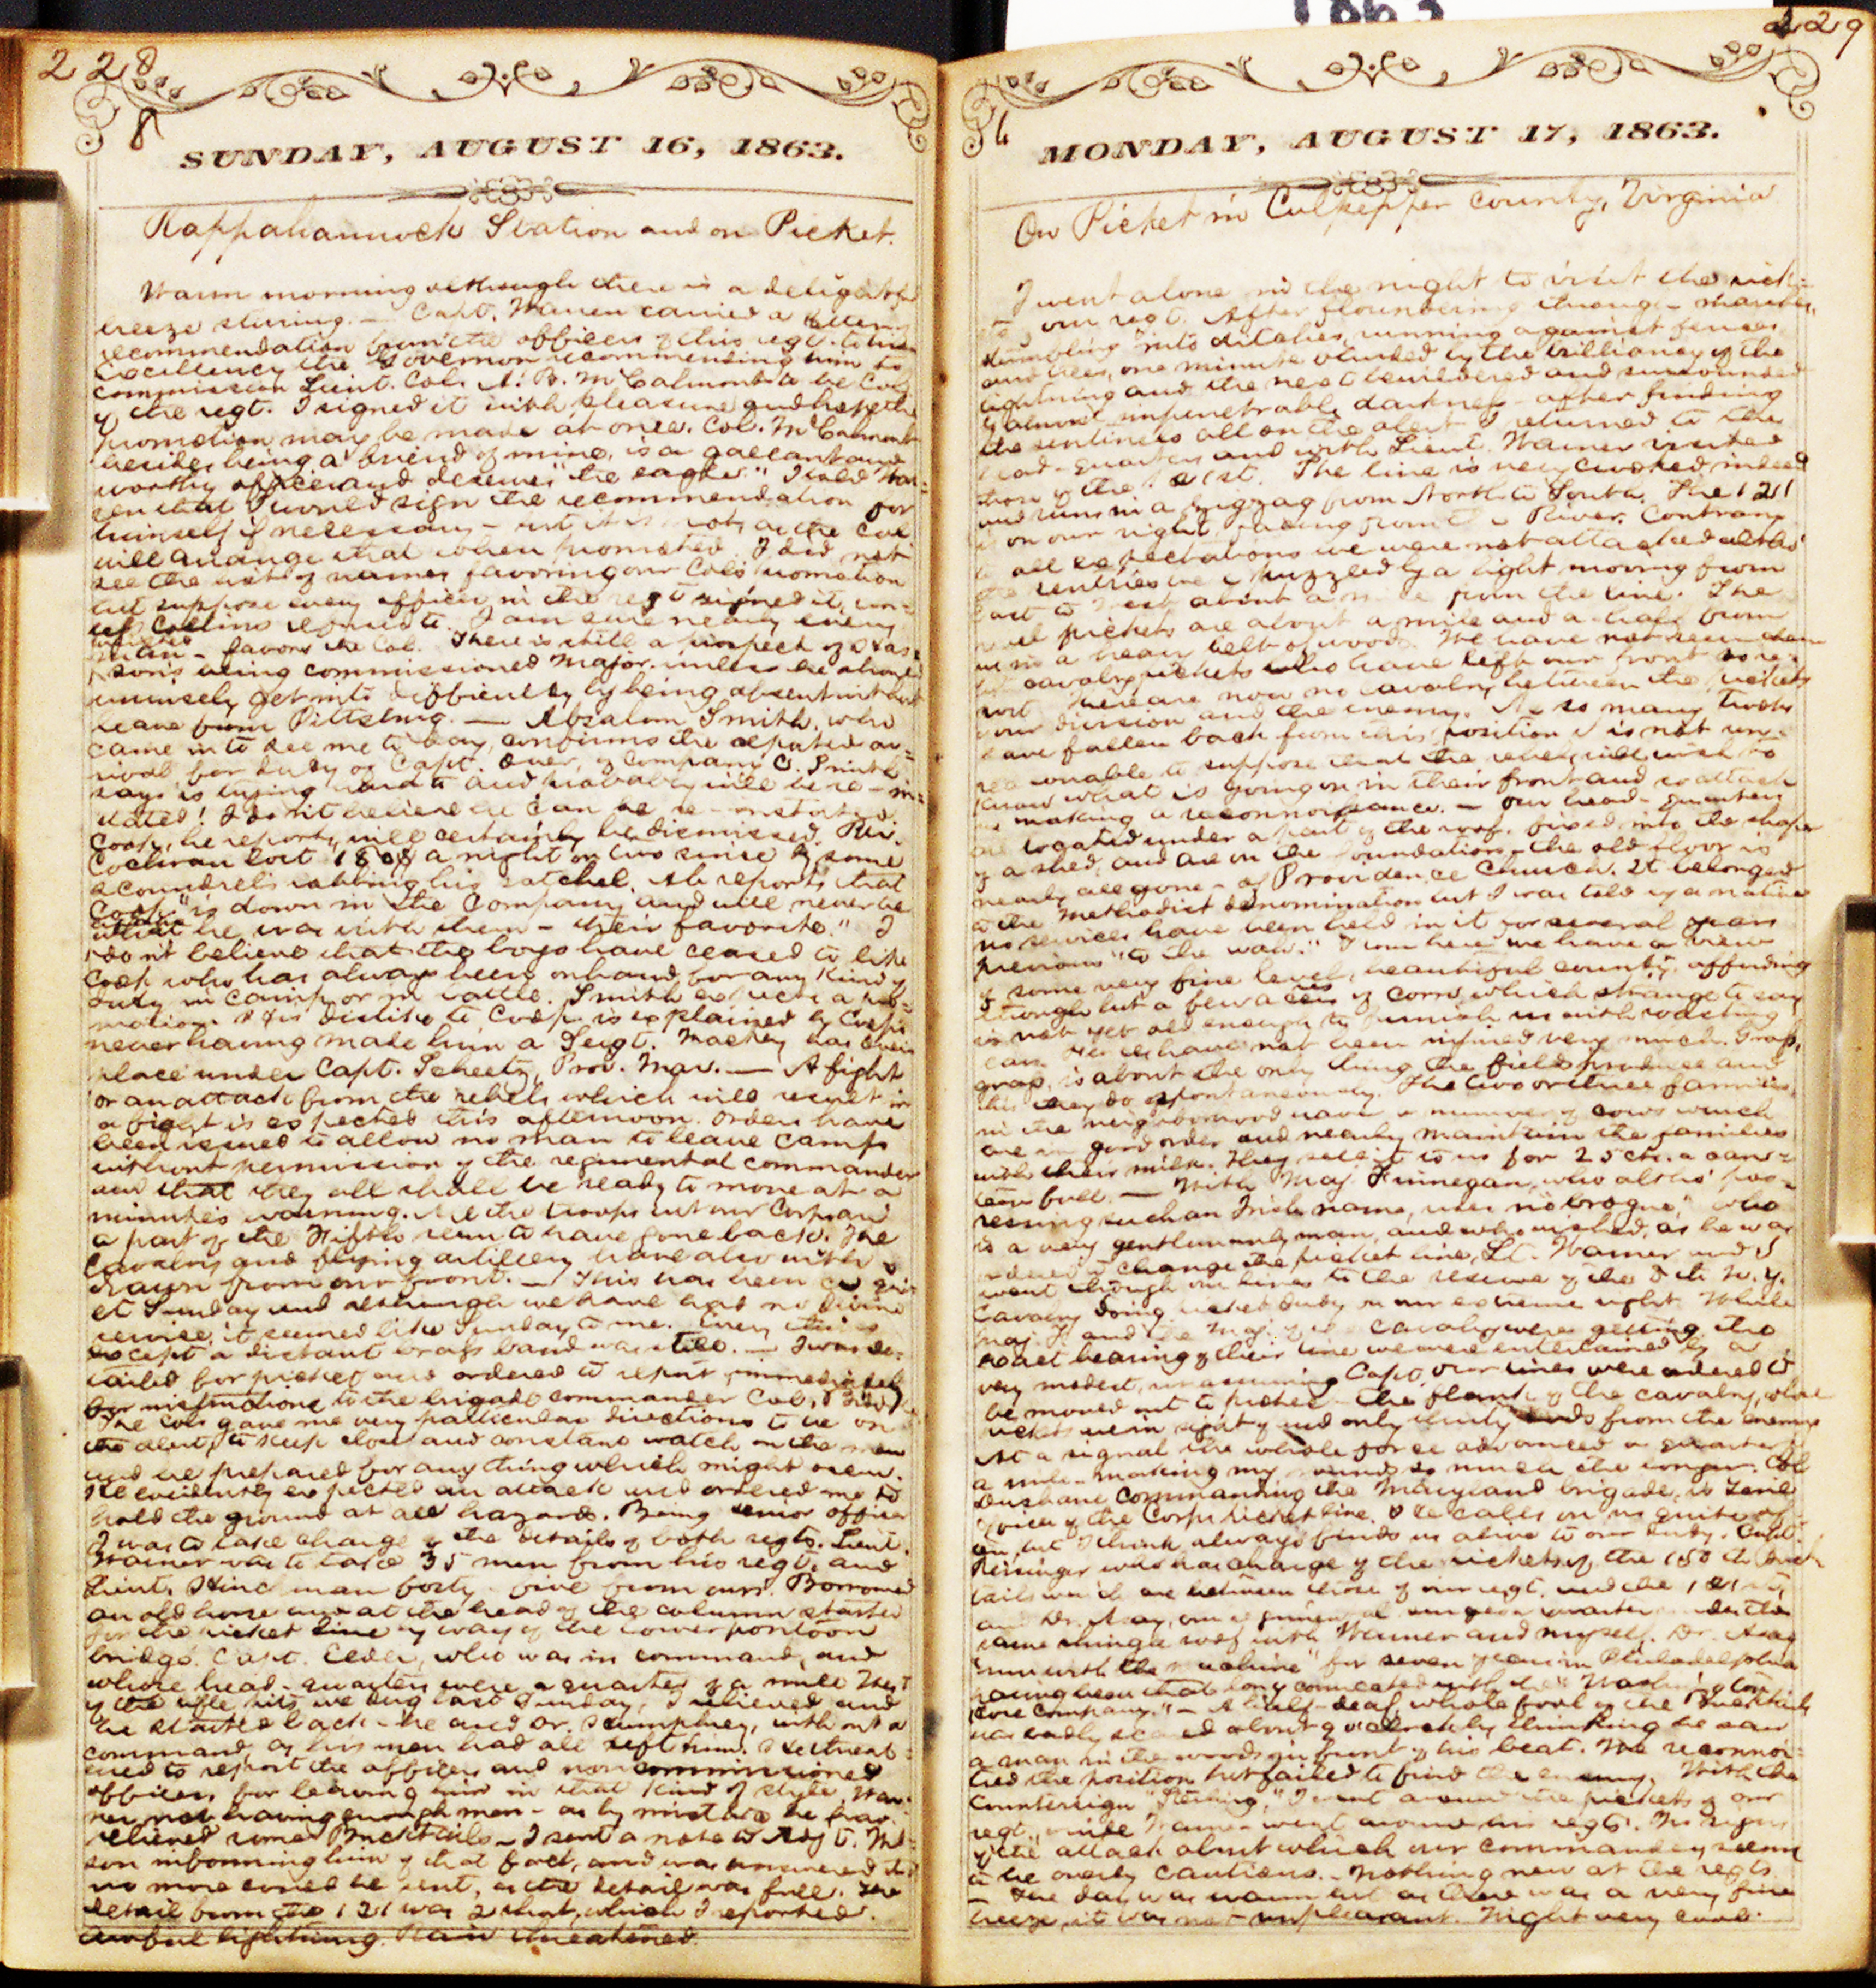 1863
228
8
SUNDAY, AUGUST 16, 1863.
Rappahannock Station and on Picket.
Warm morning although there is a delightful
breeze stirring. — Capt. Warren carried a letter of
recommendation from the officers of this regt. to his
Excellency the Governor recommending him to
commission Lieut. Col. A. B. McCalmont to be Col
of the regt. I signed it with pleasure and hope the
promotion may be made at once. Col. McCalmont
besides being a friend of mine, is a gallant and
worthy officer and deserves "the eagle." I told War-
ren that I would sign the recommendation for
himself if necessary - but it is not, as the Col
will arrange that when promoted. I did not
see the list of names favoring our Col's promotion
but suppose every officer in the regt signed it, un-
less Collins refused to. I am sure nearly every
favors the Col. There is still a prospect of
son's being commissioned Major unless he should
unwisely get into difficulty by being absent without
leave from Pittsburg. — Absalom Smith, who
came in to see me to day, confirms the reported ar-
rival for duty of Capt. Over, of Company C. Smith
says is trying hard to and probably will be re-in-
stated! I don't believe he can be re-instated.
Coop, he reports, will certainly be dismissed. Rev.
Cochran lost 180$ a night or two since by some
scoundrels robbing his satchel. Ab reports that
Coop "is down in the Company and will never be
what he was with them - their favorite." I
don't believe that the boys have ceased to like
Coop who has always been on hand for any kind of
duty in camp or in battle. Smith expects a pro-
motion. His dislike to Coop is explained by Coop's
never having made him a Sergt. Mackey has
place under Capt. Scheetz, Prov. Mar. — A fight
or an attack from the rebels which will result in
a fight is expected this afternoon. Orders have
been issued to allow no man to leave camp
without permission of the regimental commander
and that they all shall be ready to move at a
minute's warning. All the troops but our Corps and
a part of the Fifth seem to have gone back. The
Cavalry and flying artillery have also with-
drawn from our front. — This has been a qui-
et Sunday and although we have had no Divine
service, it seemed like Sunday to me. Every thing
except a distant brass band was still. — I was de-
tailed for picket and ordered to report immediately
for instructions to the brigade commander Col.
The Col. gave me very particular directions to be on
the alert, to keep close and constant watch on the men
and be prepared for any thing which might occur.
He evidently expected an attack and ordered me to
hold the ground at all hazards. Being senior officer
I was to take charge of the details of both regts. Lieut.
Warner was to take 35 men from his regt. and
Lieut. Hinc man forty-five from ours. Borrowed
an old horse and at the head of the column started
for the picket line by way of the lower pontoon
bridge. Capt. Elder, who was in command, and
whose head-quarters were a quarter of a mile West
of the rifle pits we dug last Sunday, I relieved and
he started back - he and Dr. Humphrey, without a
command, as his men had all left him. He threat-
ened to report the officers and non commissioned
officers for leaving him in that kind of style. War-
ner not having enough men - as by mistake he had
relieved some Bucktails - I sent a note to Adjt.
son informing him of that fact, and was answered that
no more could be sent, as the detail was full. The
detail from the 121 was 2 short, which I reported.
Awful lightning. Rain threatened.
229
6
MONDAY, AUGUST 17, 1863.
On Picket in Culpepper County, Virginia
I went alone in the night to visit the pick-
ets of our regt. After floundering through marshes,
stumbling into ditches, running against fences
and trees, one minute blinded by the brilliancy of the
lightning and the next bewildered and surrounded
by almost impenetrable darkness - after finding
the sentinels all on the alert I returned to the
head-quarters and with Lieut. Warner visited
those of the 121st. The line is very crooked indeed
and runs in a zigzag from North to South. The 121
is on our right, facing from the River. Contrary
to all expectations we were not attacked altho'
the sentries were puzzled by a light moving from
East to West about a mile from the line. The
rebel pickets are about a mile and a half from
us in a heavy belt of woods. We have not seen them
but cavalry pickets who have left our front so re-
port. There are now no cavalry between the pickets
of our division and the enemy. As so many troops
have fallen back from this position it is not un-
reasonable to suppose that the rebels will wish to
know what is going on in their front and so attack
us making a reconnoissance. — Our head-quarters
are located under a part of the roof, fixed into the shape
of a shed, and are on the foundation - the old floor is
nearly all gone - of Providence Church. It belonged
to the Methodist denomination but I was told by a native
no services have been held in it for several years
previous "to the wah." From here we have a view
of some very fine level, beautiful county, affording
though but a few acres of corn, which strange to say
is not yet old enough to furnish us with roasting
ears. Fences have not been injured very much. Grass,
grass, is about the only thing the fields produce and
this they do spontaneously. The two or three families
in the neighborhood have a number of cows which
are in good order and nearly maintain the families
with their milk. They sell it to us for 25 cts. a can-
teen full. — With Maj. Finnegan, who altho' pos-
sessing such an Irish name, uses no "brogue," who
is a very gentlemanly man, and who wished, as he was
ordered to change the picket line, Lt. Warner and I
went through our lines to the reserve of the 8th N. Y.
Cavalry doing picket duty on our extreme right. While
Maj. F. and the Maj. of the Cavalry were getting the
exact bearing of their line we were entertained by a
very modest, unassuming Capt. Our lines were ordered to
be moved out to protect the flank of the cavalry, whose
pickets were in sight of and only thirty rods from the enemy.
At a signal the whole force advanced a quarter of
a mile - making my rounds so much the longer. Col
Dushane commanding the Maryland brigade, is Field
officer of the Corps picket line. He calls on us quite of-
ten, but I think always finds us alive to our duty. Capt.
Reisinger who has charge of the pickets of the 150th Buck-
tails which are between those of our regt. and the 121st
and Dr. Asay, our regimental surgeon quarter under the
same shingle roof with Warner and myself. Dr. Asay
"run with the machine" for seven years in Philadelphia
having been that long connected with the "Washington
hose Company." — A half-deaf, whole fool of the Bucktails
was badly scared about 9 o'clock by thinking he saw
a man in the woods in front of his beat. We reconnoi-
tred the position but failed to find the enemy. With the
countersign I went around the pickets of our
regt., while Warner went around his regts. No signs
of the attack about which our commanders seem
to be overly cautious. - Nothing new at the regts.
— The day was warm but as there was a very fine
breeze, it was not unpleasant. Night very cool.